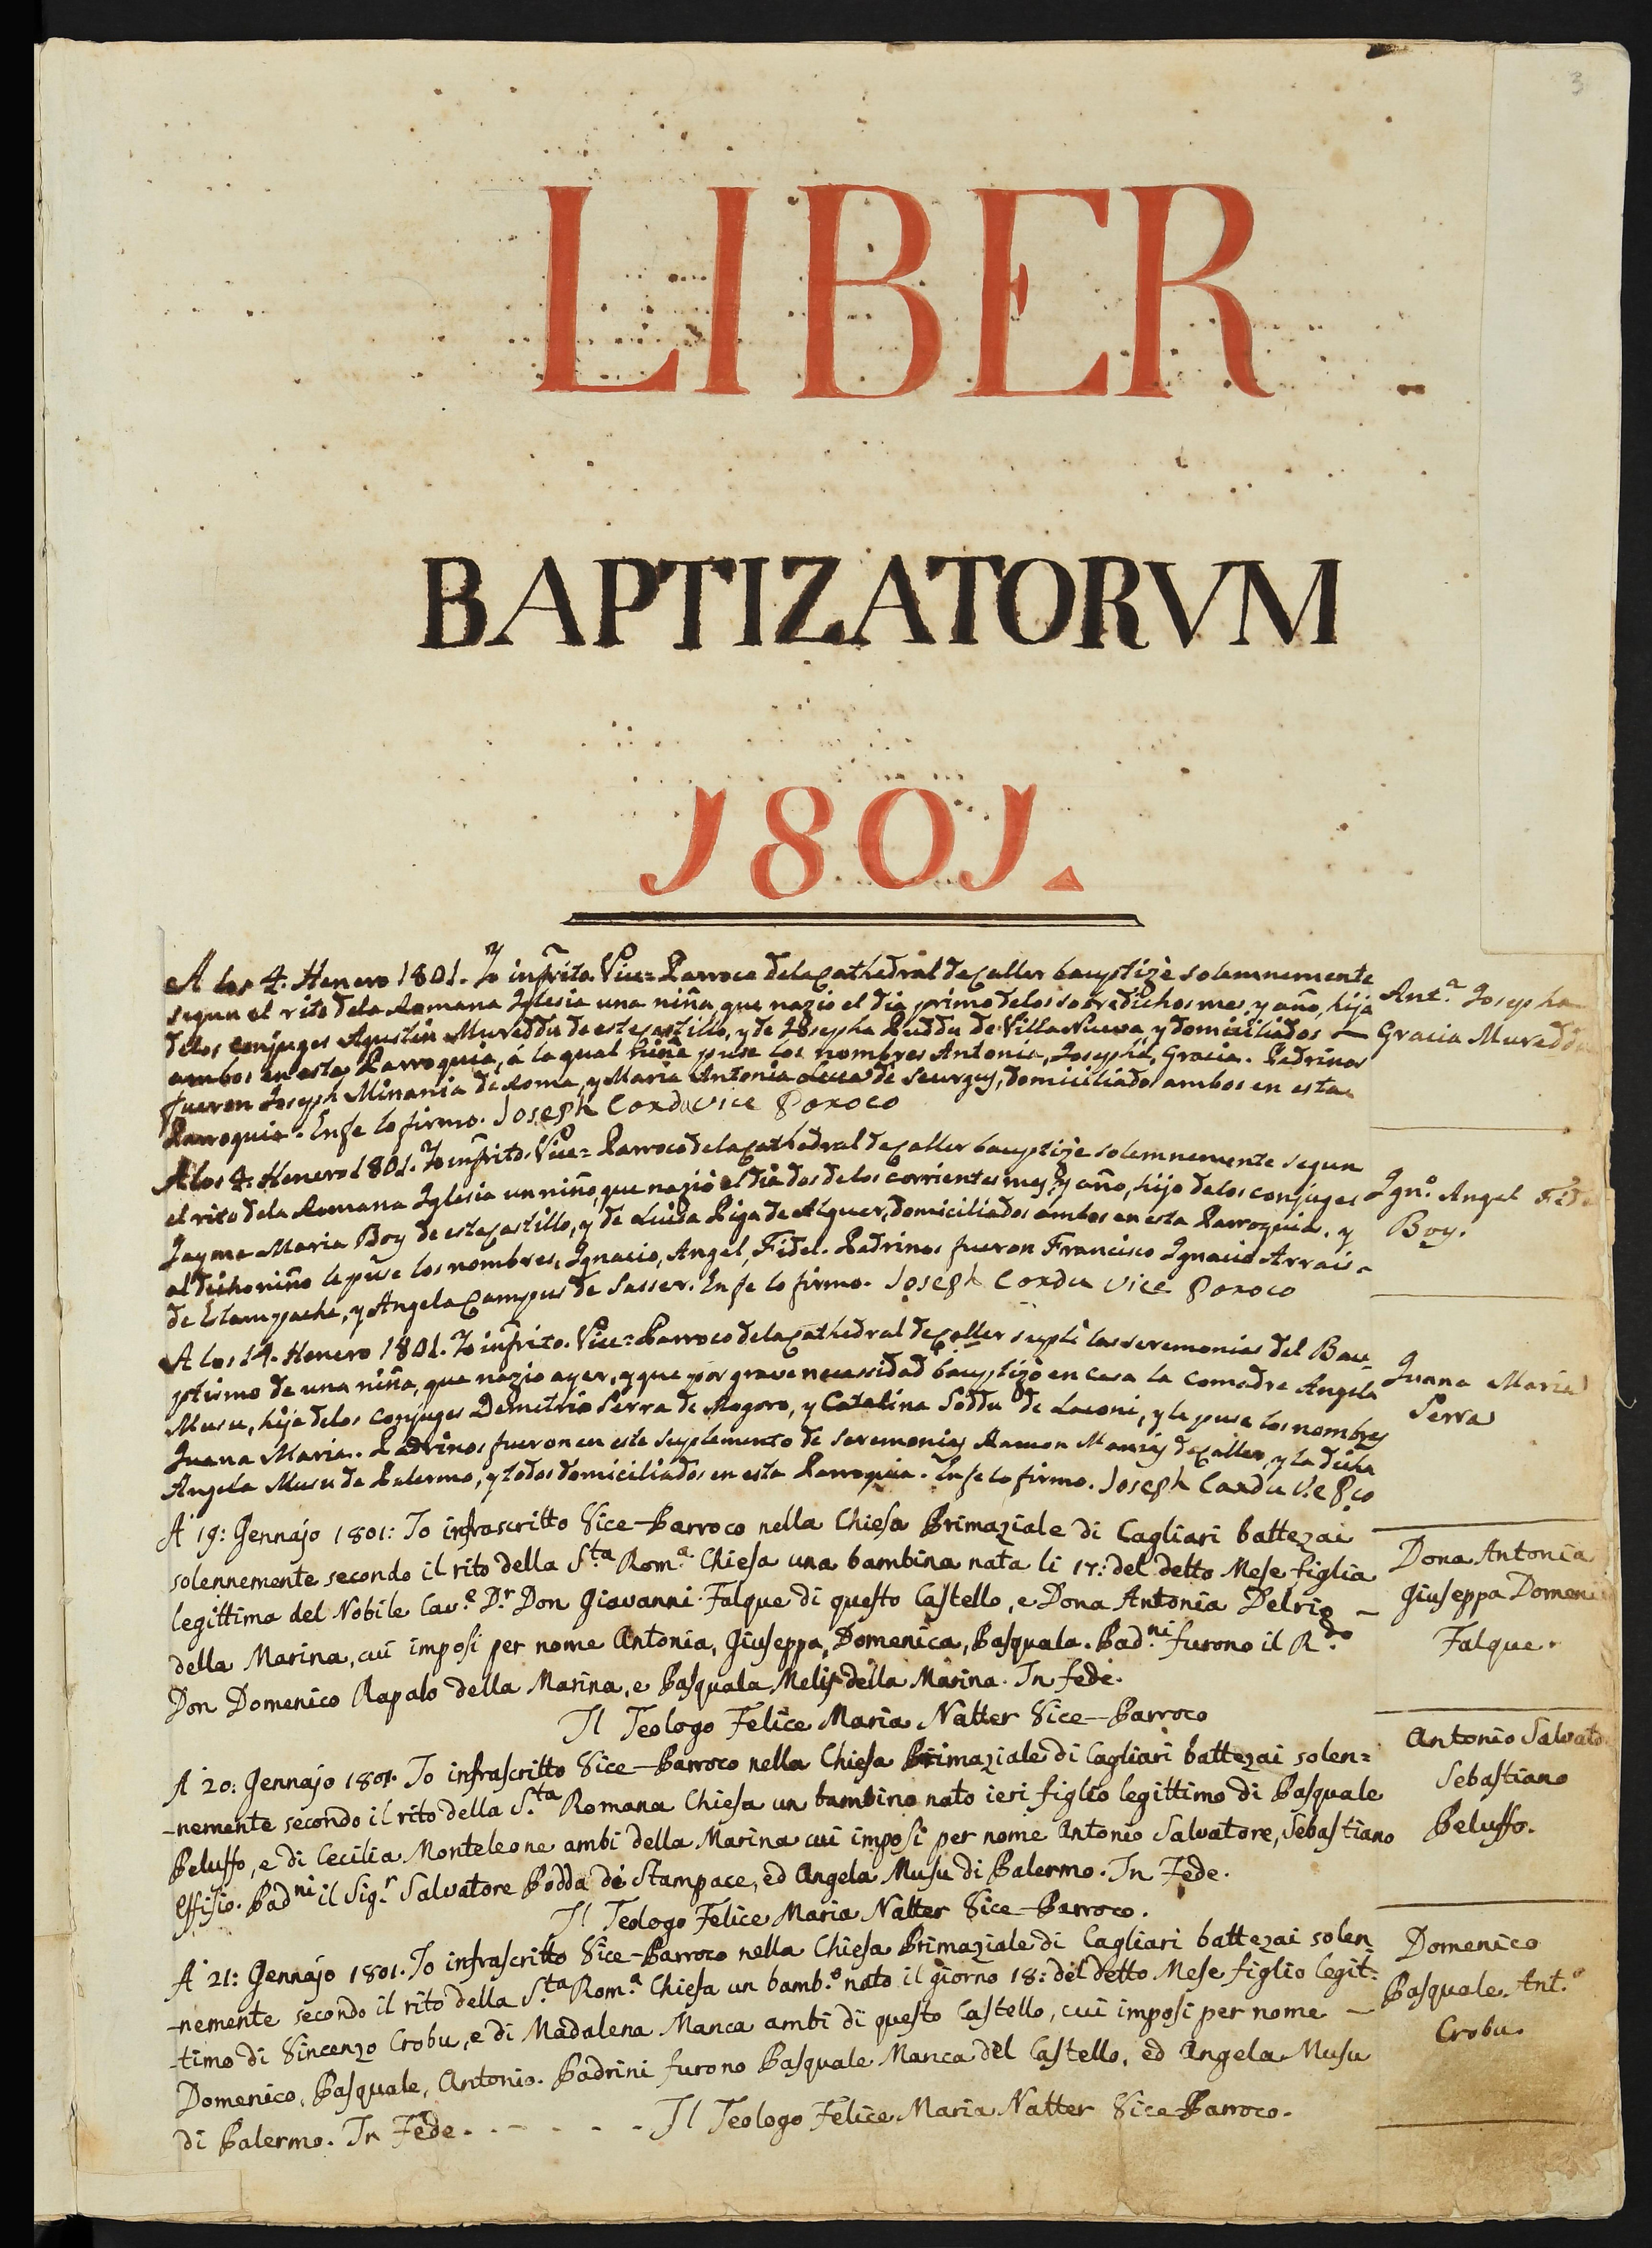 3
LIBER
BAPTIZATORVM
1801.
A los 4. Henero 1801. Yo infrito. Vice=Parroco dela Cathedral de Caller bauptizè solemnemente
segun el rito dela Romana Iglesia una niña, que naziò el dia primo delos sobredichos mes, y año, hija
delos conjuges Agustin Mureddu de este Castillo, y de Josepha Puddu de Villa Nueva, y domiciliados
ambos en esta Parroquia, à la qual niña puse los nombres Antonia, Josepha, Gracia. Padrinos
fueron Joseph Minania de Roma, y Maria Antonia Lecca de Seurgus, domiciliados ambos en esta
Parroquia. En fe lo firmo. Joseph Cordu Vice Paroco
Ant.ª Josepha
Gracia Mureddu
A los 4. Henero 1801. Yo infrito. Vice=Parroco dela Cathedral de Caller bauptizè solemnemente segun
el rito dela Romana Iglesia un niño, que naziò el dia dos de los corrientes mes, y año, hijo delos conjuges
Jayme Maria Boy de este Castillo, y de Luisa Piga de Alguer, domiciliados ambos en esta Parroquia, y
al dicho niño le puse los nombres, Ignacio, Angel, Fidel. Padrinos fueron Francisco Ignacio Arrais
de Estampache, y Angela Campus de Sasser. En fe lo firmo. Joseph Cordu Vice Paroco
Ign.º Angel Fidel
Boy.
A los 14. Henero 1801. Yo infrito. Vice=Parroco dela Cathedral de Caller supli las seremonias del Bau-
ptismo de una niña, que naziò ayer, y que por grave necessidad bauptizò en casa la Comadre Angela
Musu, hija delos Conjuges Demetrio Serra de Mogoro, y Catalina Soddu de Laconi, y le puse los nombres
Juana Maria. Padrinos fueron en este suplemento de seremonias Ramon de Caller, y la dicha
Angela Musu de Palermo, y todos domiciliados en esta Parroquia. En fe lo firmo. Joseph Cardu V.e P.co
Juana Maria
Serra
A' 19: Gennajo 1801: Io infrascritto Vice-Parroco nella Chiesa Primaziale di Cagliari battezai
solennemente secondo il rito della S.ta Rom.ª Chiesa una bambina nata li 17: del detto Mese figlia
legittima del Nobile Cav.e D.r Don Giovanni Falque di questo Castello, e Dona Antonia Delrio —
della Marina, cui imposi per nome Antonia, Giuseppa, Domenica, Pasquala. Pad.ni furono il R.do
Don Domenico Rapalo della Marina, e Pasquala Melis della Marina. In fede.
Il Teologo Felice Maria Natter Vice-Parroco
Dona Antonia
Giuseppa Domenica
Falque.
A' 20: Gennajo 1801. Io infrascritto Vice-Parroco nella Chiesa Primaziale di Cagliari battezai solen=
-nemente secondo il rito della S.ta Romana Chiesa un bambino nato ieri figlio legittimo di Pasquale
Peluffo, e di Cecilia Monteleone ambi della Marina cui imposi per nome Antonio Salvatore, Sebastiano
Effisio. Pad.ni il Sig.r Salvatore Podda di Stampace, ed Angela Musu di Palermo. In Fede.
Il Teologo Felice Maria Natter Vice-Parroco.
Antonio Salvato
Sebastiano
Peluffo.
A' 21: Gennajo 1801. Io infrascritto Vice-Parroco nella Chiesa Primaziale di Cagliari battezai solen=
-nemente secondo il rito della S.ta Rom.ª Chiesa un bamb.º nato il giorno 18: del detto Mese figlio legit=
-timo di Vincenzo Crobu, e di Madalena Manca ambi di questo Castello, cui imposi per nome —
Domenico, Pasquale, Antonio. Padrini furono Pasquale Manca del Castello, ed Angela Musu
di Palermo. In Fede. - - - - - Il Teologo Felice Maria Natter Vice-Parroco.
Domenico
Pasquale Ant.º
Crobu.